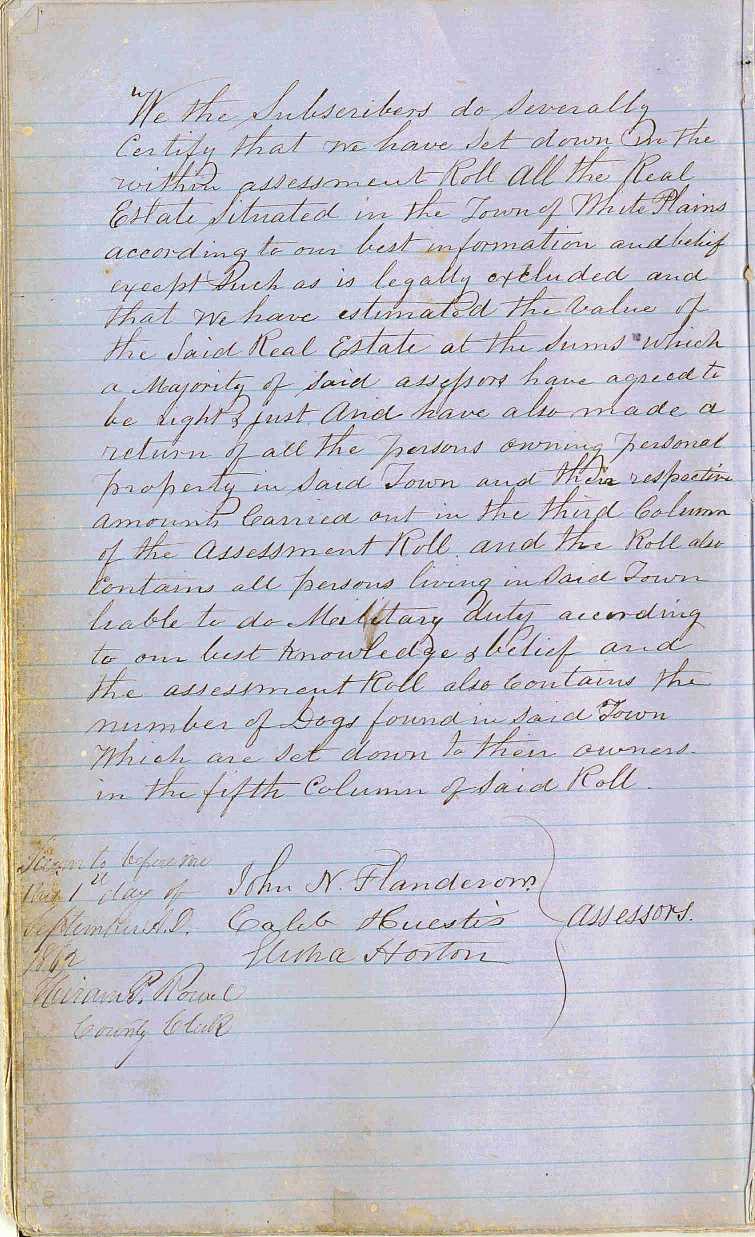 "We the Subscribers do Severally
Certify that we have Set down in the
within assessment Roll All the Real
Estate Situated in the Town of White Plains
according to our best information and belief
except Such as is legally excluded and
that we have estimated the value of
the Said Real Estate at the Sums which
a Majority of Said assessors have agreed to
be right & just. And have also made a
return of all the persons owning personal
property in Said Town and their respective
amounts Carried out in the third Column
of the Assessment Roll. and the Roll also
Contains all persons living in Said Town
liable to do Military duty according
to our best Knowledge & belief and
the assessment Roll also Contains the
number of Dogs found in Said Town
Which are Set down to their owners
in the fifth Column of Said Roll.
Sworn to before me
this 1st day of
September A.D.
1862
Hiram P. Rowel
County Clerk
John N. Flanderow
Caleb Huestis
Elisha Horton
Assessors.